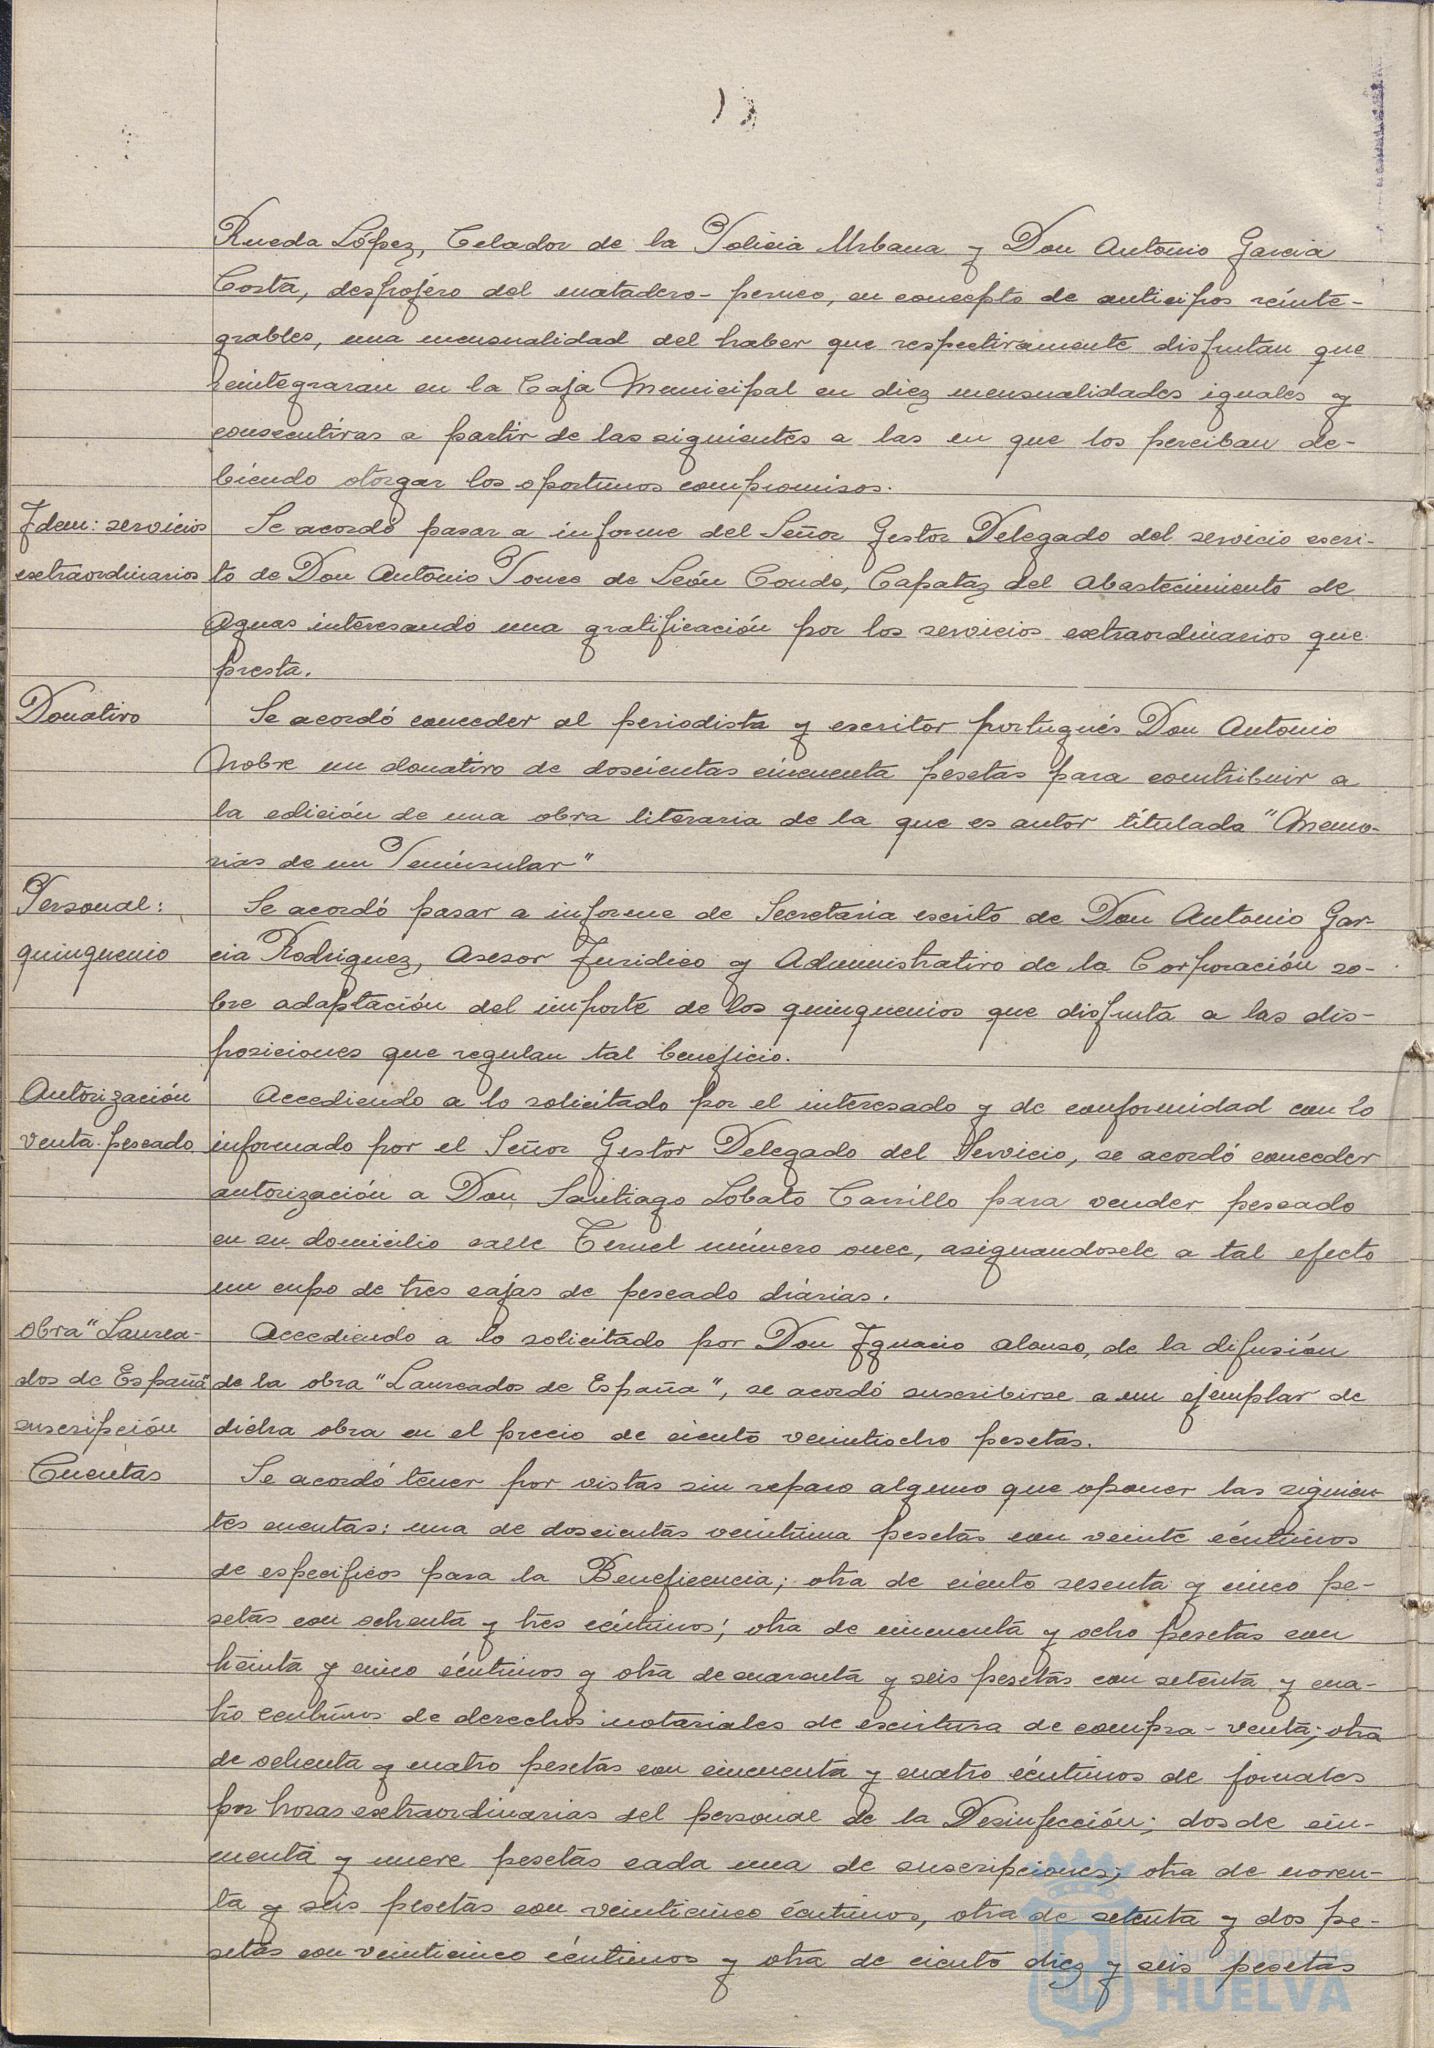 Rueda López, Celador de la Policia Urbana y Don Antonio Garcia
Costa, despojéro del matadero-perneo, en concepto de anticipos reinte-
grables, una mensualidad del haber que respectivamente disfrutan que
reintegraran en la Caja Municipal en diez mensualidades iguales y
consecutivas a partir de las siguientes a las en que los perciban de-
biendo otorgar los oportunos compromisos.
Idem: servicios
extraordinarios
Se acordó pasar a informe del Señor Gestor Delegado del servicio escri-
to de Don Antonio Ponce de León Conde, Capataz del Abastecimiento de
Aguas interesando una gratificación por los servicios extraordinarios que
presta.
Donativo
Se acordó conceder al periodista y escritor portugués Don Antonio
Nobre un donativo de doscientas cincuenta pesetas para contribuir a
la edición de una obra literaria de la que es autor titulada "Memo-
rias de un Peninsular"
Personal:
quinquenio
Se acordó pasar a informe de Secretaria escrito de Don Antonio Gar-
cia Rodriguez, Asesor Juridico y Administrativo de la Corporación so-
bre adaptación del importe de los quinquenios que disfruta a las dis-
posiciones que regulan tal beneficio.
Autorización
venta pescado
Accediendo a lo solicitado por el interesado y de conformidad con lo
informado por el Señor Gestor Delegado del Servicio, se acordó conceder
autorización a Don Santiago Lobato Carrillo para vender pescado
en su domicilio calle Teruel número once, asignandosele a tal efecto
un cupo de tres cajas de pescado diarias.
Obra "Laurea-
dos de España"
suscripción
Accediendo a lo solicitado por Don Ignacio Alonso, de la difusión
de la obra "Laureados de España", se acordó suscribirse a un ejemplar de
dicha obra en el precio de ciento veintiocho pesetas.
Cuentas
Se acordó tener por vistas sin reparo alguno que oponer las siguien-
tes cuentas: una de doscientas veintiuna pesetas con veinte céntimos
de especificos para la Beneficencia; otra de ciento sesenta y cinco pe-
setas con ochenta y tres céntimos; otra de cincuenta y ocho pesetas con
treinta y cinco céntimos y otra de cuarenta y seis pesetas con setenta y cua-
tro centimos de derechos notariales de escritura de compra-venta; otra
de ochenta y cuatro pesetas con cincuenta y cuatro céntimos de jornales
por horas extraordinarias del personal de la Desinfección; dos de cin-
cuenta y nueve pesetas cada una de suscripciones; otra de noven-
ta y seis pesetas con veinticinco céntimos, otra de setenta y dos pe-
setas con veinticinco céntimos y otra de ciento diez y seis pesetas
Ayuntamiento de
HUELVA